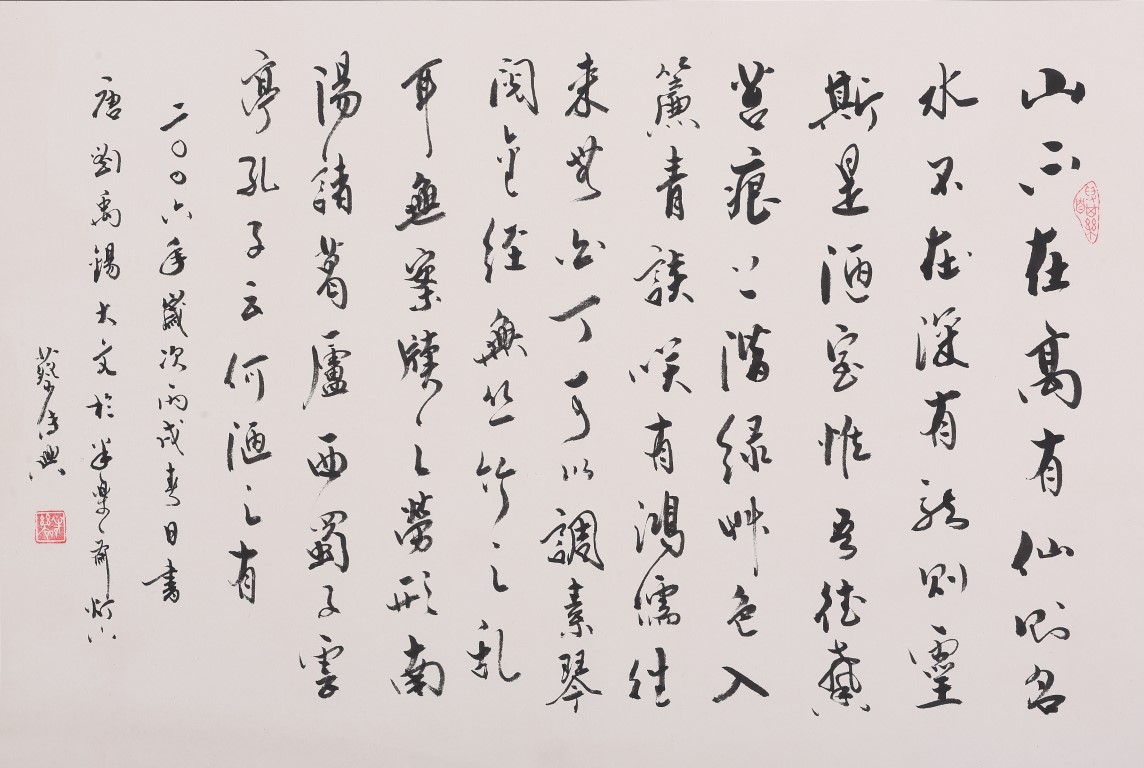 山不在高有仙則名
水不在深有龍則靈
斯是陋室惟吾德馨
苔痕上階綠艸色入
簾青談笑有鴻儒往
来無白丁可以調素琴
閱金經無丝竹之乱
耳無案牘之勞形南
陽諸葛廬西蜀子雲
亭孔子云何陋之有
二〇〇六年歲次丙戌春日書
唐劉禹錫大文於半樂齋灯下
蔡